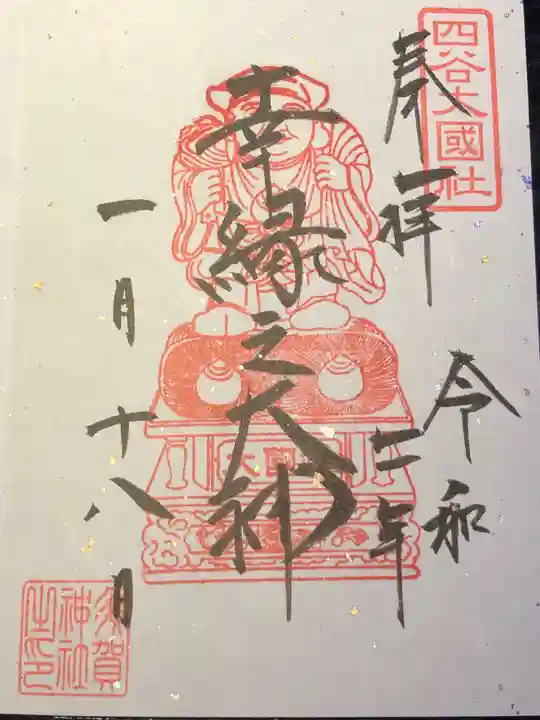 四谷大國社
奉拝
令和
二年
幸縁之大神
一月十八日
大國
須賀
神社
之印